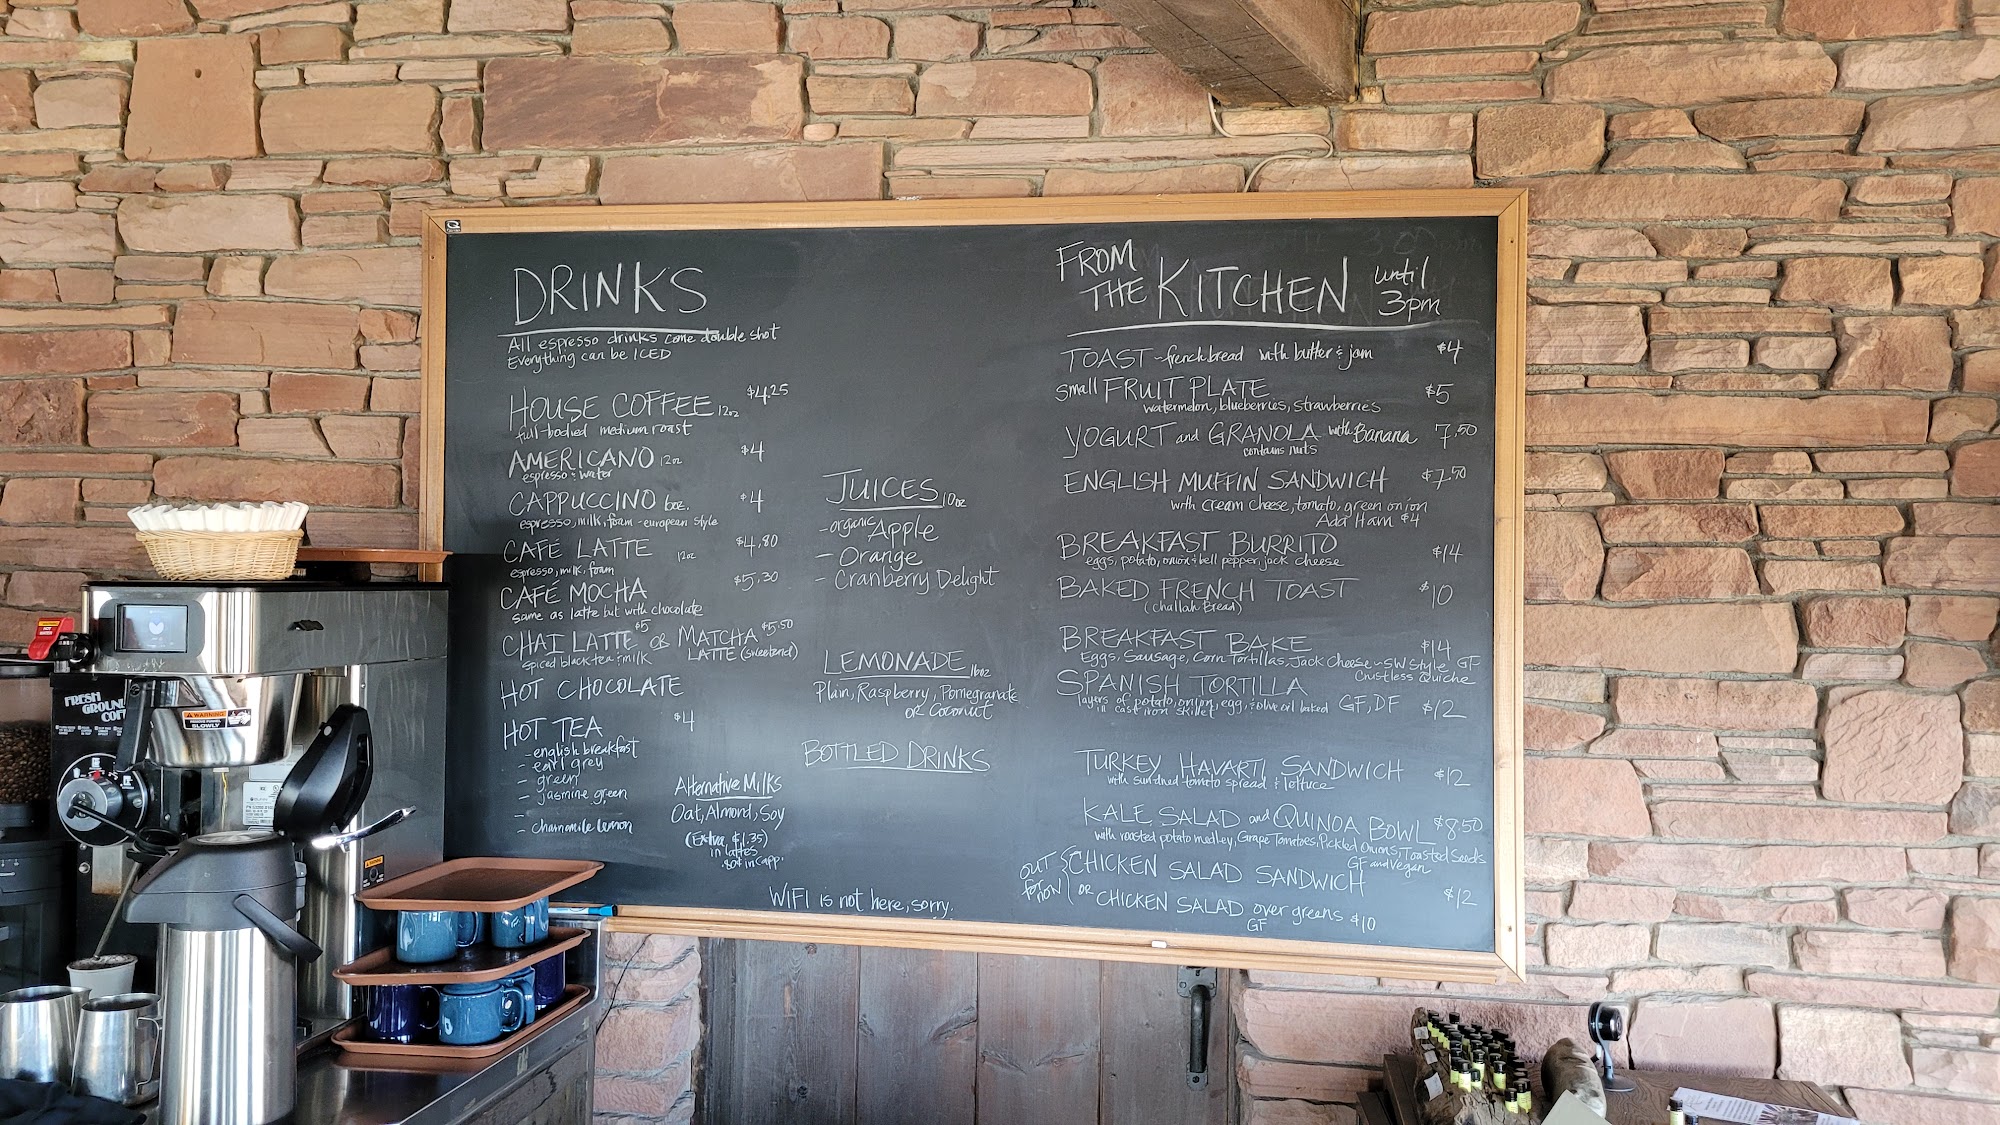 DRINKS
All espresso drinks come double shot
Everything can be ICED
HOUSE COFFEE 12oz $4.25
full-bodied medium roast
AMERICANO 12oz $4
espresso & water
CAPPUCCINO 6oz. $4
espresso, milk, foam - european style
CAFÉ LATTE 12oz $4.80
espresso, milk, foam
CAFÉ MOCHA $5.30
same as latte but with chocolate
CHAI LATTE $5 OR MATCHA $5.50
spiced black tea & milk LATTE (sweetend)
HOT CHOCOLATE
HOT TEA $4
- english breakfast
- earl grey
- green
- jasmine green
-
- chamomile lemon
Alternative Milks
Oat, Almond, Soy
(Extra $1.35)
in lattes
.80¢ in capp.
JUICES 10oz
- organic Apple
- Orange
- Cranberry Delight
LEMONADE 16oz
Plain, Raspberry, Pomegranate
OR Coconut
BOTTLED DRINKS
WIFI is not here, sorry.
FROM THE KITCHEN until 3pm
TOAST - french bread with butter & jam $4
small FRUIT PLATE $5
watermelon, blueberries, strawberries
YOGURT and GRANOLA with Banana 7.50
contains nuts
ENGLISH MUFFIN SANDWICH $7.50
with cream cheese, tomato, green onion
Add Ham $4
BREAKFAST BURRITO $14
eggs, potato, onion & bell pepper, jack cheese
BAKED FRENCH TOAST $10
(challah Bread)
BREAKFAST BAKE $14
Eggs, Sausage, Corn Tortillas, Jack Cheese - SW Style GF
Crustless Quiche
SPANISH TORTILLA
layers of potato, onion, egg, & olive oil baked GF, DF $12
in cast iron skillet
TURKEY HAVARTI SANDWICH $12
with sundried tomato spread & lettuce
KALE SALAD and QUINOA BOWL $8.50
with roasted potato medley, Grape Tomatoes, Pickled Onions, Toasted Seeds
GF and Vegan
OUT for now { CHICKEN SALAD SANDWICH $12
OR CHICKEN SALAD over greens $10
GF
FRESH
GROUND
WARNING
SLOWLY
WARNING